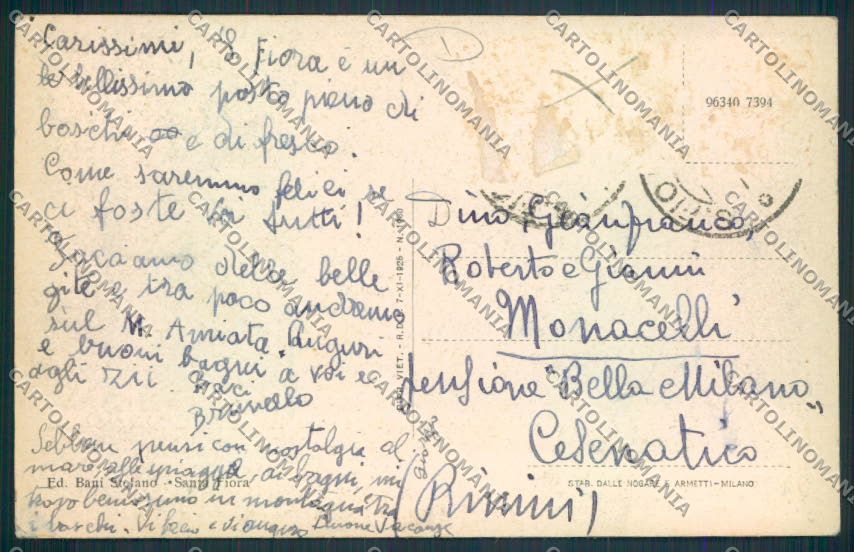 Carissimi, S. Fiora è un
bellissimo posto pieno di
boschi e di fresco.
Come saremmo felici se
ci foste voi tutti!
Facciamo delle belle
gite e tra poco andremo
sul M. Amiata. Auguri
e buoni bagni a voi e
agli zii. Baci
Brunello
Sebbene pensi con nostalgia al
mare alle spiagge ai bagni, mi
trovo benissimo in montagna tra
i boschi. Vi bacio e vi auguro buone vacanze
Ed. Bani Stefano - Santa Fiora
96340 7394
Dino, Gianfranco,
Roberto e Gianni
Monacelli
pensione "Bella Milano"
Cesenatico
(Rimini)
VIET. - R.D. 7-XI-1925 - N.
STAB. DALLE NOGARE E ARMETTI - MILANO
CARTOLINOMANIA